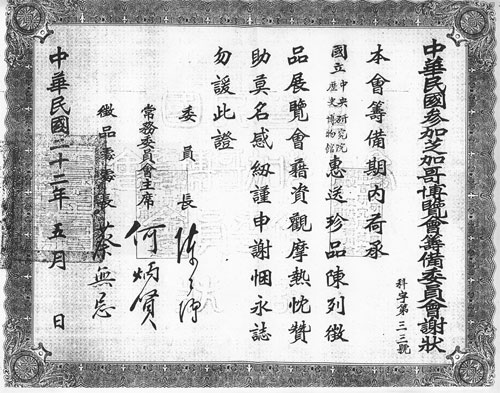 中華民國參加芝加哥博覽會籌備委員會謝狀
科字第三三號
本會籌備期內荷承
國立中央研究院歷史博物館惠送珍品陳列徵
品展覽會藉資觀摩熱忱贊
助莫名感紉謹申謝悃永誌
勿諼此證
委員長
常務委員會主席 何炳賢
徵品 長 蔡無忌
中華民國二十二年五月 日